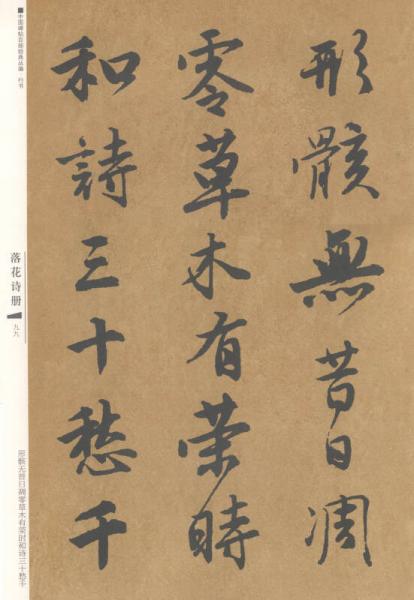 形骸無昔日凋
零草木有荣時
和詩三十愁千
■中国碑帖百部经典丛编 行书
落花诗册
九九
形骸无昔日凋零草木有荣时和诗三十愁千